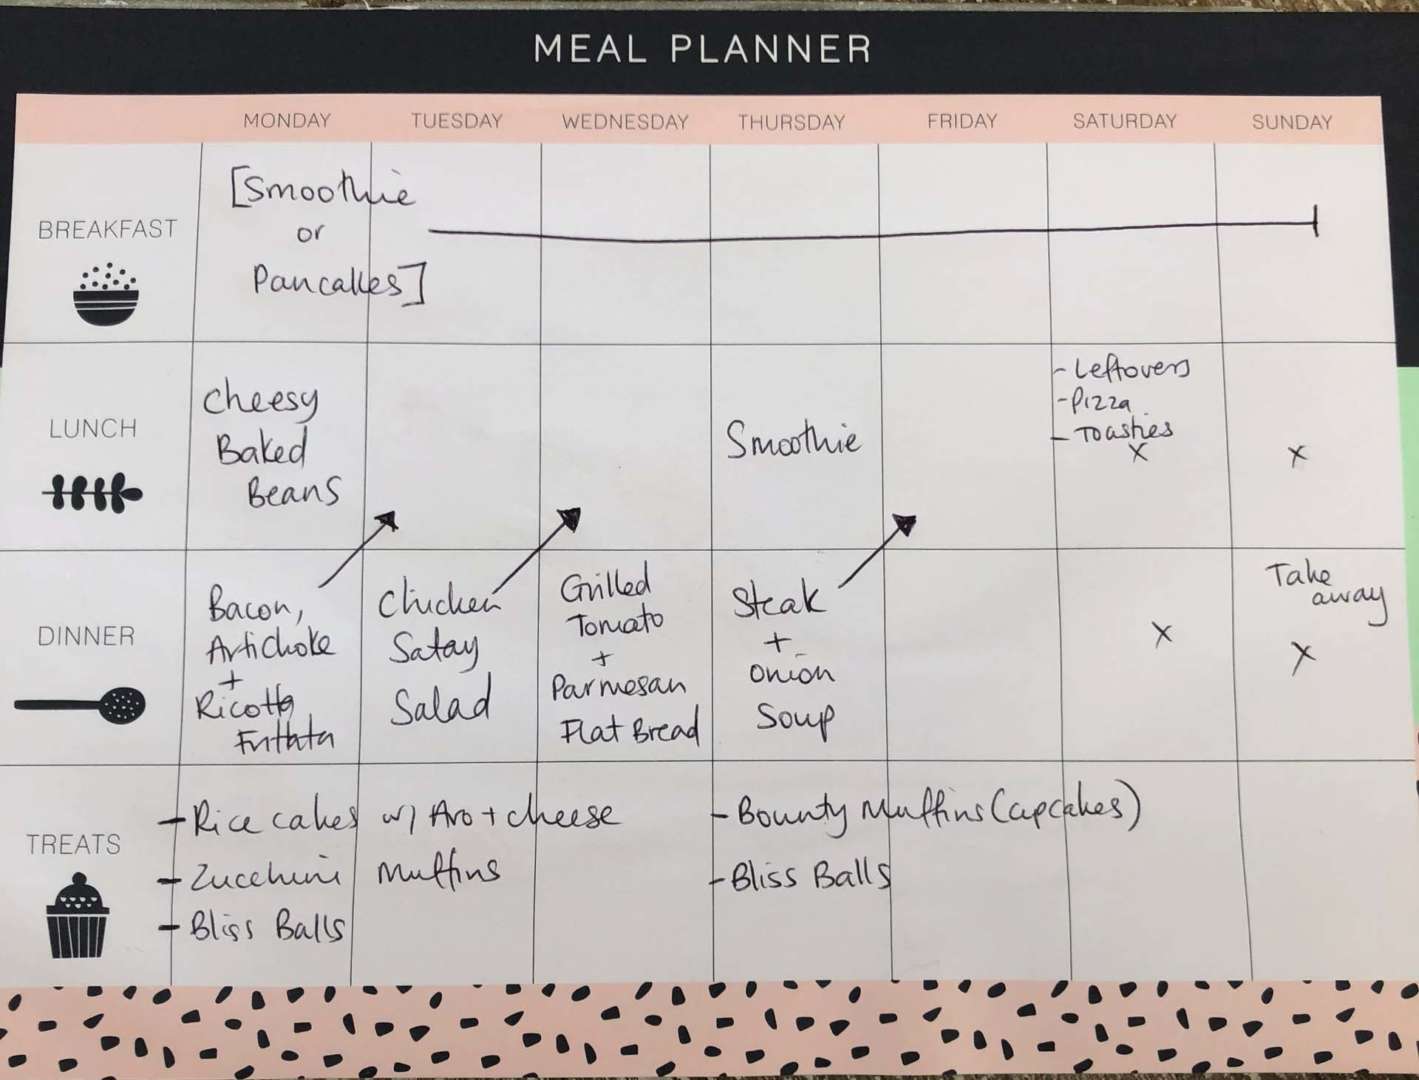 MEAL PLANNER
MONDAY TUESDAY WEDNESDAY THURSDAY FRIDAY SATURDAY SUNDAY
BREAKFAST
[Smoothie
or
Pancakes]
LUNCH
Cheesy
Baked
Beans
Smoothie
- Leftovers
- Pizza
- Toasties
x
x
DINNER
Bacon,
Artichoke
+
Ricotta
Frittata
Chicken
Satay
Salad
Grilled
Tomato
+
Parmesan
Flat Bread
Steak
+
Onion
Soup
x
Take
away
x
TREATS
- Rice cakes w/ Avo + cheese
- Zucchini Muffins
- Bliss Balls
- Bounty Muffins (cupcakes)
- Bliss Balls